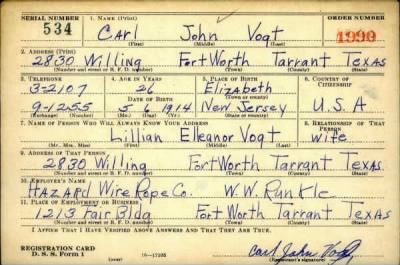 SERIAL NUMBER 1. NAME (Print) ORDER NUMBER
534 Carl John Vogt 1990
(First) (Middle) (Last)
2. ADDRESS (Print)
2830 Willing Fort Worth Tarrant Texas
(Number and street or R. F. D. number) (Town) (County) (State)
3. TELEPHONE 4. AGE IN YEARS 5. PLACE OF BIRTH 6. COUNTRY OF CITIZENSHIP
3-2107 26 Elizabeth
DATE OF BIRTH (Town or county)
9-1255 5-6-1914 New Jersey U.S.A
(Exchange) (Number) (Mo.) (Day) (Yr.) (State or country)
7. NAME OF PERSON WHO WILL ALWAYS KNOW YOUR ADDRESS 8. RELATIONSHIP OF THAT PERSON
Lillian Elleanor Vogt wife
(Mr., Mrs., Miss) (First) (Middle) (Last)
9. ADDRESS OF THAT PERSON
2830 Willing Fort Worth Tarrant Texas
(Number and street or R. F. D. number) (Town) (County) (State)
10. EMPLOYER'S NAME
Hazard Wire Rope Co. W.W. Runkle
11. PLACE OF EMPLOYMENT OR BUSINESS
1213 Fair Bldg Fort Worth Tarrant Texas
(Number and street or R. F. D. number) (Town) (County) (State)
I AFFIRM THAT I HAVE VERIFIED ABOVE ANSWERS AND THAT THEY ARE TRUE.
REGISTRATION CARD
D. S. S. Form 1 (over) Carl John Vogt
(Registrant's signature)